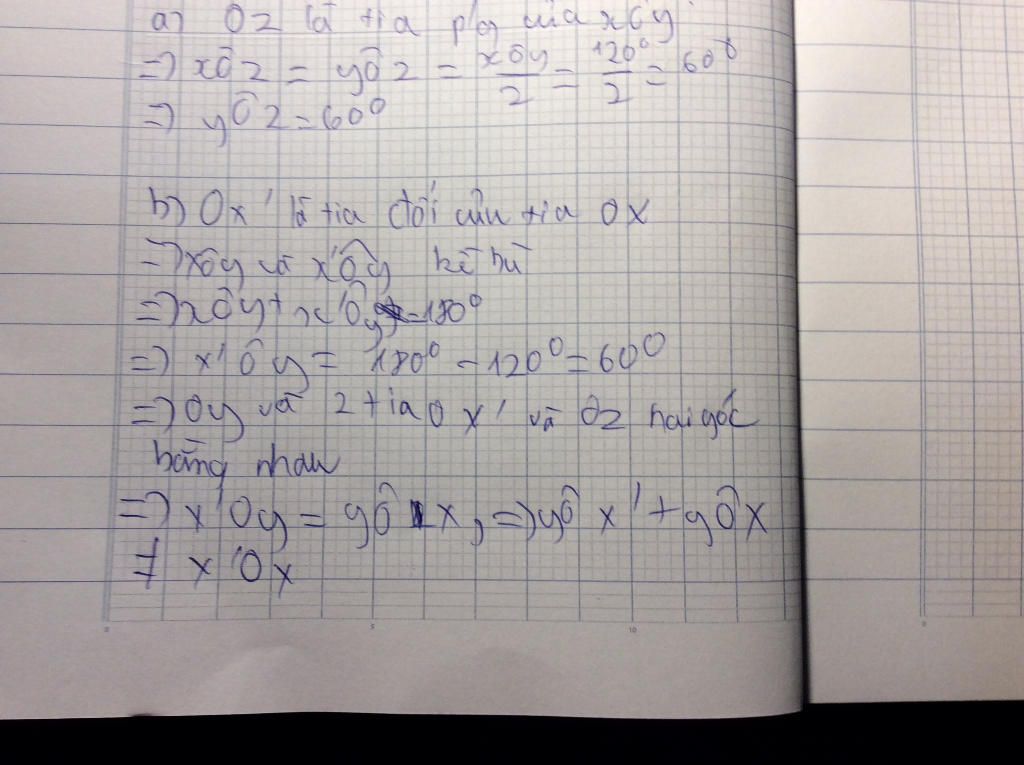 a) Oz là tia p/g của xÔy
=> xÔz = yÔz = xÔy/2 = 120°/2 = 60°
=> yÔz = 60°
b) Ox' là tia đối của tia Ox
=> xÔy và x'Ôy kề bù
=> xÔy + x'Ôy = 180°
=> x'Ôy = 180° - 120° = 60°
=> Oy và 2 tia Ox' và Oz hai góc
bằng nhau
=> x'Ôy = yÔ x, => yÔx' + yÔx
≠ x'Ôx
0 5 10
0